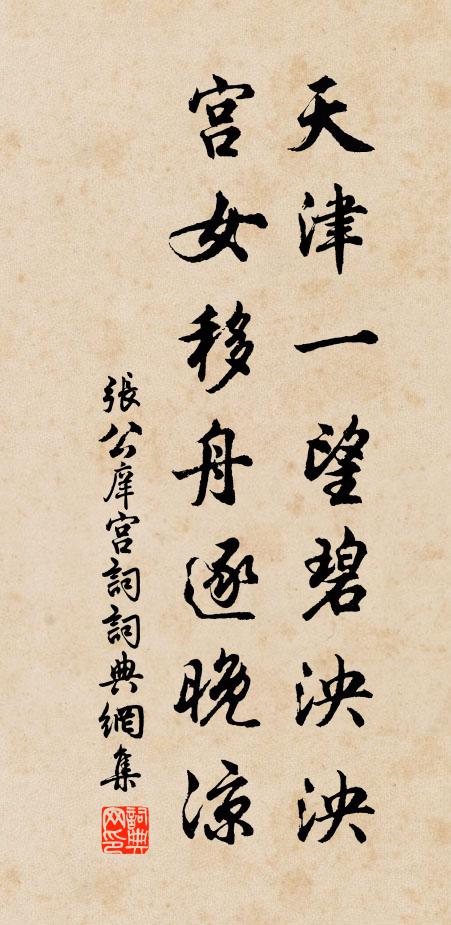 天津一望碧泱泱
宫女移舟逐晚凉
張公庠宫詞詞典網集
詞典网印